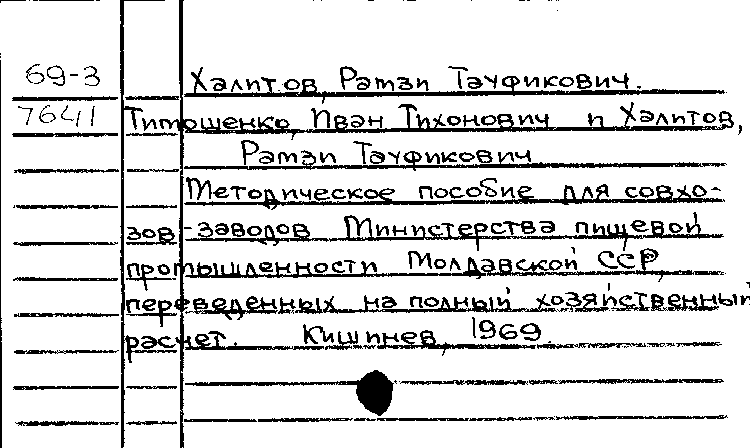 69-3 Халитов, Рэмзи Тауфикович.
7641 Тимошенко, Иван Тихонович и Халитов,
Рэмзи Тауфикович
Методическое пособие для совхо-
зов-заводов Министерства пищевой
промышленности Молдавской ССР,
переведенных на полный хозяйственный
расчет. Кишинев, 1969.